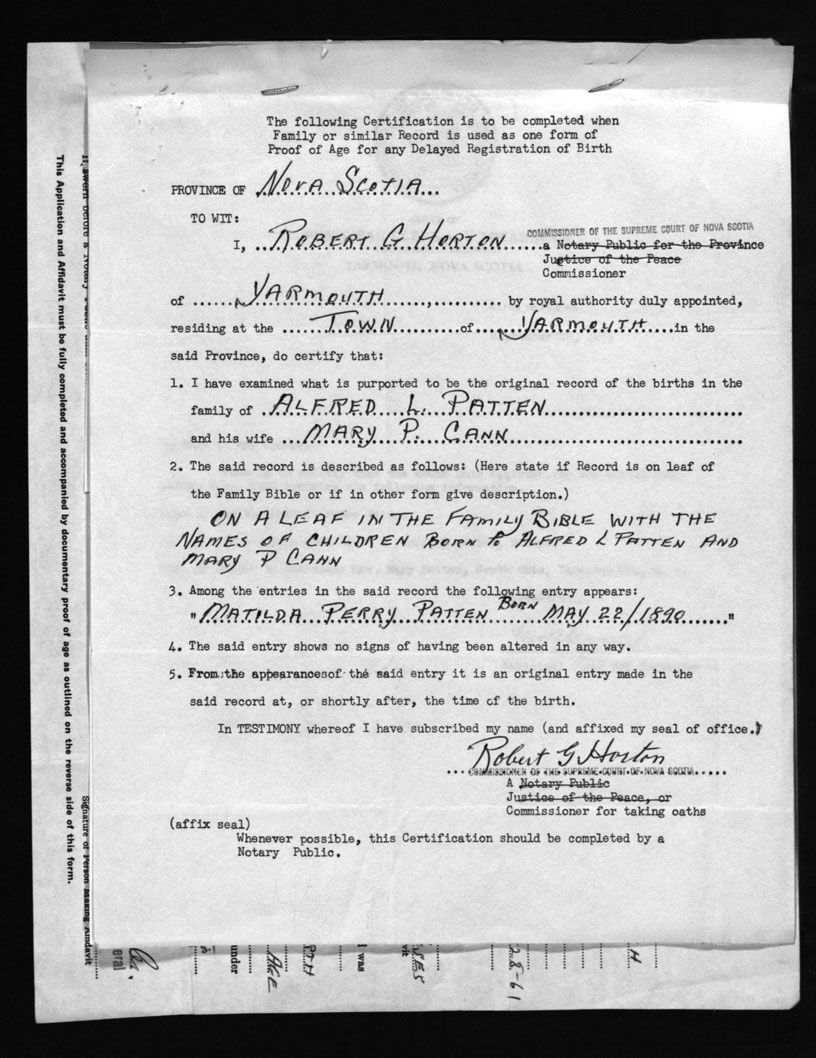 The following Certification is to be completed when
Family or similar Record is used as one form of
Proof of Age for any Delayed Registration of Birth
PROVINCE OF NOVA SCOTIA
TO WIT:
COMMISSIONER OF THE SUPREME COURT OF NOVA SCOTIA
I, ROBERT G. HORTON a Notary Public for the Province
Justice of the Peace
Commissioner
of YARMOUTH by royal authority duly appointed,
residing at the TOWN of YARMOUTH in the
said Province, do certify that:
1. I have examined what is purported to be the original record of the births in the
family of ALFRED L. PATTEN
and his wife MARY P. CANN
2. The said record is described as follows: (Here state if Record is on leaf of
the Family Bible or if in other form give description.)
ON A LEAF IN THE FAMILY BIBLE WITH THE
NAMES OF CHILDREN BORN to ALFRED L PATTEN AND
MARY P CANN
3. Among the entries in the said record the following entry appears:
"MATILDA PERRY PATTEN BORN MAY 22/1890"
4. The said entry shows no signs of having been altered in any way.
5. From the appearances of the said entry it is an original entry made in the
said record at, or shortly after, the time of the birth.
In TESTIMONY whereof I have subscribed my name (and affixed my seal of office.)
Robert G. Horton
COMMISSIONER OF THE SUPREME COURT OF NOVA SCOTIA
A Notary Public
Justice of the Peace, or
Commissioner for taking oaths
(affix seal)
Whenever possible, this Certification should be completed by a
Notary Public.
This Application and Affidavit must be fully completed and accompanied by documentary proof of age as outlined on the reverse side of this form.
Signature of Person Making Affidavit
eral
under
AGE
I was
vit
28-61
H